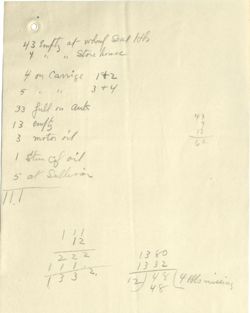 43 Empty at wharf Seal Hbls
4 " " Store house
4 on Carrige 1&2
5 " " 3+4
33 full on
13 empty
3 motor oil
1 oil
5 at Sullivan
111
43
4
13
60
111
12
222
111
1332
1380
1332
12/48
48
4 Hbls missing